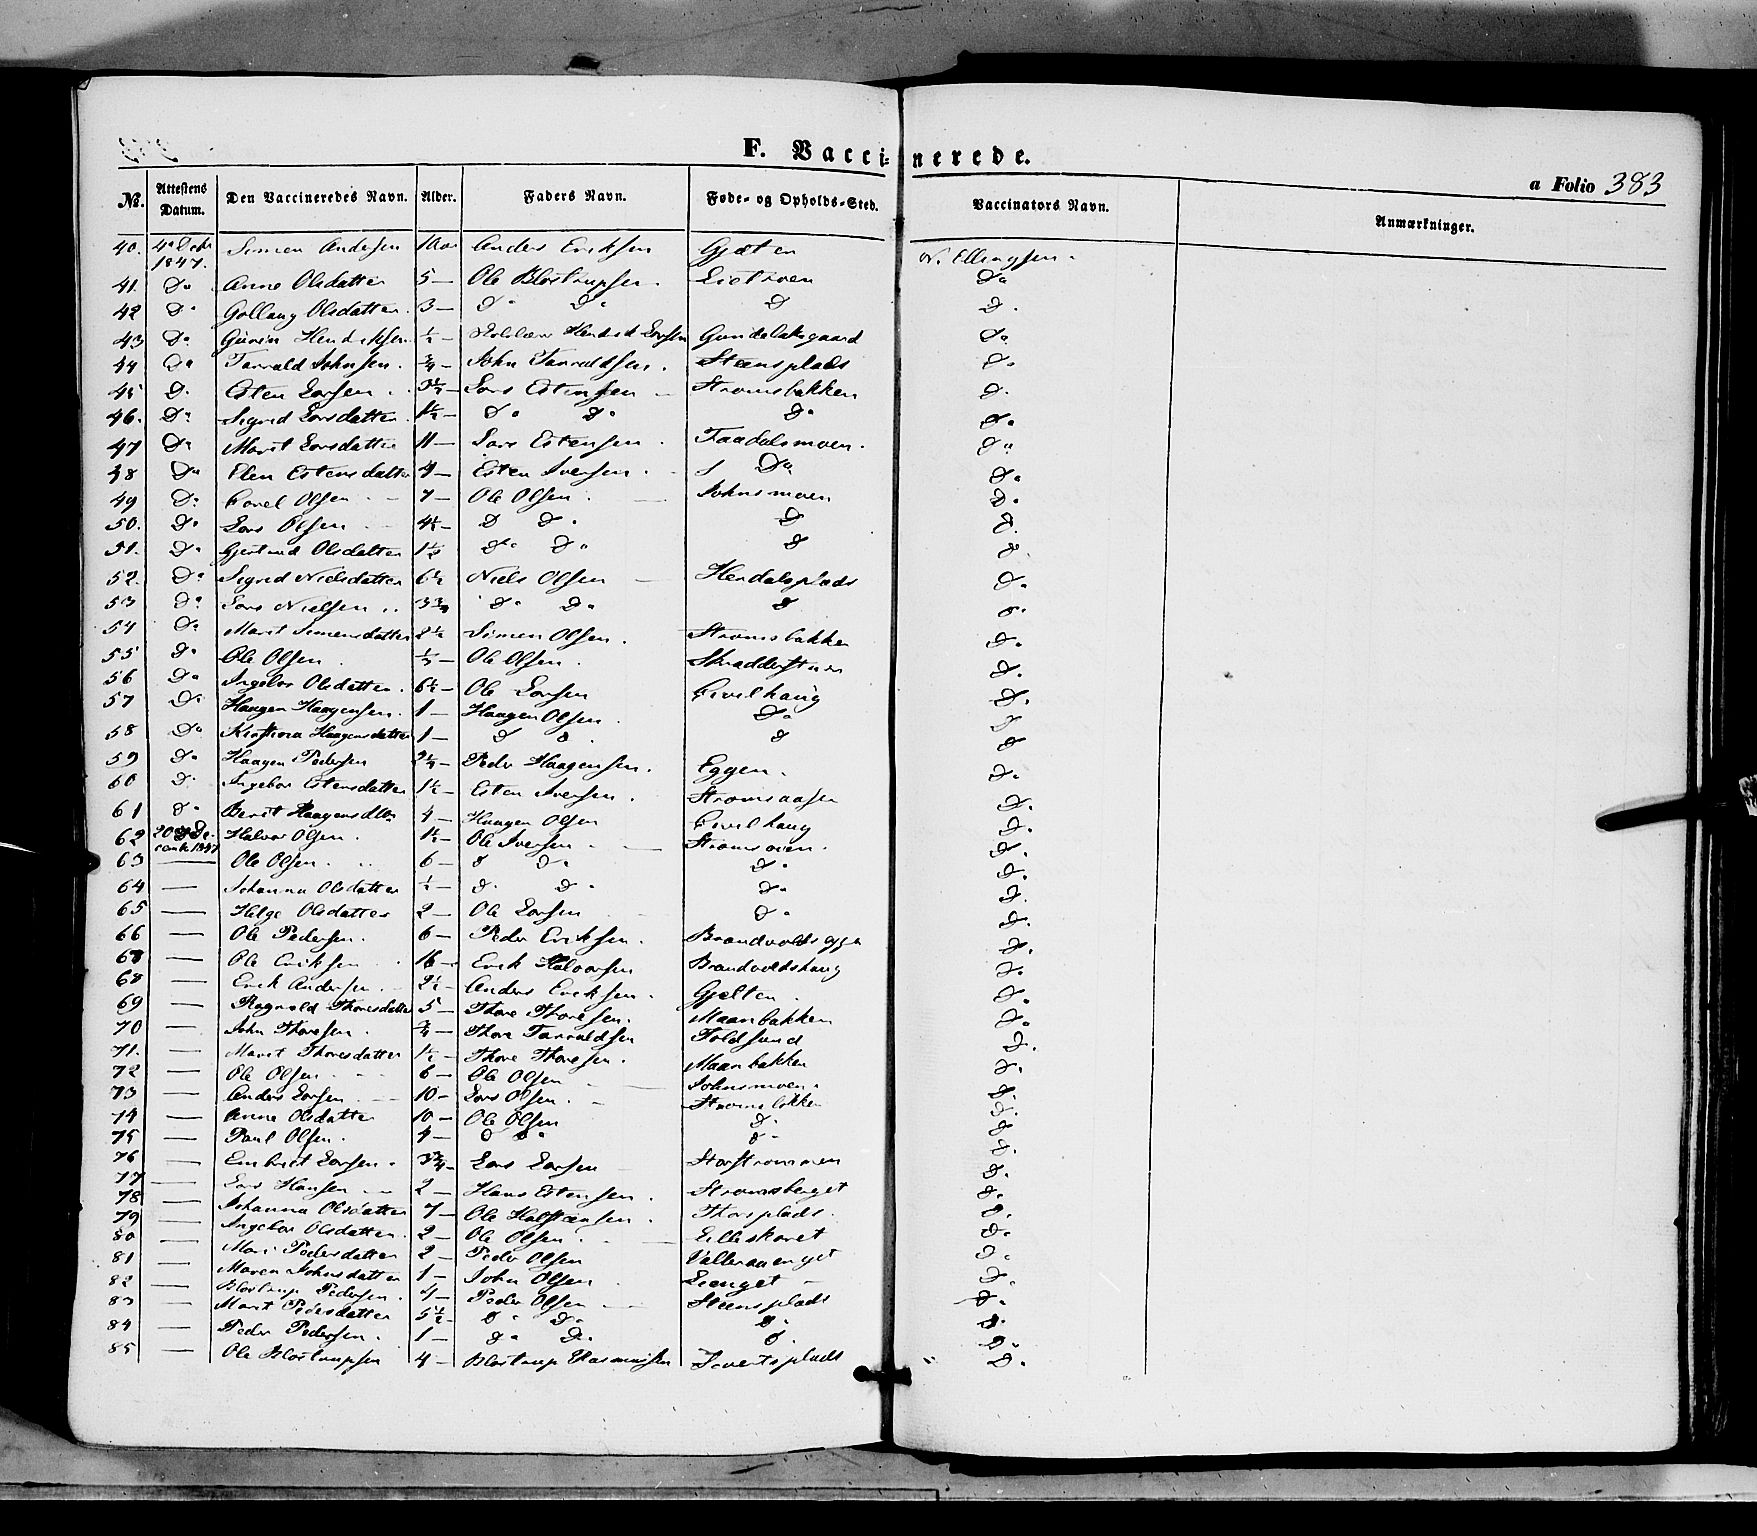 F. Vaccinerede.
a Folio 383
No. Attestens Datum. Den Vaccineredes Navn. Alder. Faders Navn. Føde- og Opholds-Sted. Vaccinators Navn. Anmærkninger.
40. 1847. Simen Andersen Anders Eriksen Gjelten N. Ellingsen.
41. Do Anne Olsdatter 5 — Ole Blostrupsen. Lietroen Do
42 Do Gollaug Olsdatter. 3 — D. Do D D.
43 Do Hendriksen ½ — Hendrik Larsen Gundelaksgaard Do
44 Do Tarrald Johnsen. ¾ — John Tarraldsen. Steensplads D.
45 D. Esten Larsen. 3½ — Lars Estensen — Stromsbakken D.
46. Do Sigrid Larsdatter. 1½ — Do Do Do D.
47 Do Marit Larsdatter 11 — Lars Estensen. Taadalsmoen. Do
48 Do Elen Estensdatter 4 — Esten Iversen. Do D.
49 D. Olsen 7 — Ole Olsen. Johnsmoen D.
50. Do Lars Olsen 4½ — D D. D D.
51. Do Gjertrud Olsdatter 1½ Do Do D D.
52. Do Sigrid Nielsdatter 6½ Niels Olsen — Hendalsplads D.
53 D. Lars Nielsen 3¾ Do Do D D.
54 Do Marit Simensdatter 2½ Simen Olsen. Stromsbakken D.
55 D. Ole Olsen. ½ — Ole Olsen. Skradderstuen D.
56 Do Ingebor Olsdatter. 6½ — Ole Larsen haug D.
57 D. Haagen Haagensen. 1 — Haagen Olsen. Do D
58 Do Haagensdatter 1 — D D. D D
59 Do Haagen Pedersen 2½ — Peder Haagensen. Eggen. D.
60 D. Ingebor Estensdatter 1½ — Esten Iversen. Stromsaasen D.
61 Do Berit Haagensdtr 4 — Haagen Olsen haug D.
62 20 1847 Halvor Olsen. 1½ — Ole Iversen. — D.
63 — Ole Olsen. 6 — D Do D. D.
64 — Johanna Olsdatter ½ — D. Do D. D.
65 — Helge Olsdatter 2 — Ole Larsen D. D.
66 — Ole Pedersen. 6 — Peder Eriksen. D.
— Ole Eriksen 16 — Erik Halvorsen Brandvoldshaug D.
68 — Erik Andersen. 2½ — Anders Eriksen. Gjelten. D.
69 — Ragnild Thoresdatter 5 — Thore Thoresen. Maanbakken D.
70 — John Thoresen. ¾ — Thore Tarraldsen Foldsund D.
71. — Marit Thoresdatter 1½ — Thore Thoresen. Maanbakken D.
72 — Ole Olsen 6 — Ole Olsen — Johnsmoen. D.
73 — Anders Larsen. 10 — Lars Olsen. D.
74 — Anne Olsdatter 10 — Ole Olsen D. D
75 — Paul Olsen. 4 — D D. D. D.
76 — Embret Larsen. 3¾ — Lars Larsen Storstrommen D.
77 — Lars Hansen — 2 — Hans Estensen. Stromsberget D.
78 — Johanna Olsdatter 7 — Ole Halstensen. Thorsplads. D.
79 — Ingebor Olsdatter. 2 — Ole Olsen. — Lilleskaret D.
80 — Mari Pedersdatter 2 — Peder Olsen D.
81 — Maren Johnsdatter 1 — John Olsen. Lienget — D.
82 — Blostrup Pedersen. 4 — Peder Olsen Steensplads D.
83 — Marit Pedersdatter 5½ D. D. D. D.
84 — Peder Pedersen. 1 — Do D. D. D.
85 — Ole Blostrupsen 4 — Blostrup Rasmussen Ivertsplads D.